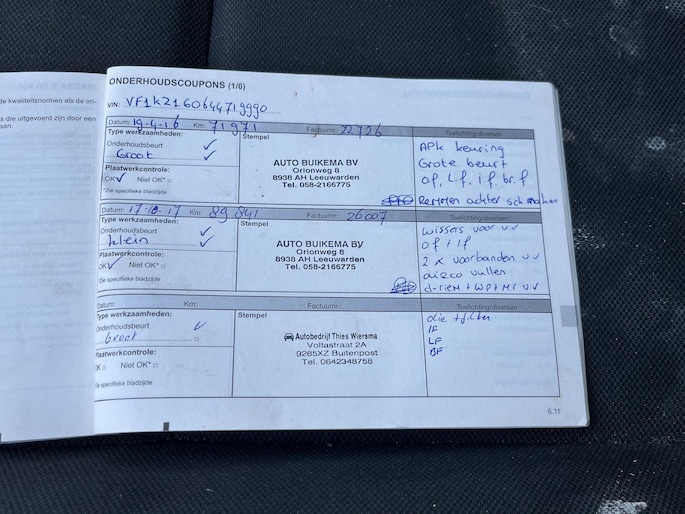 de kwaliteitsnormen als de on-
s die uitgevoerd zijn door een
saan.
ONDERHOUDSCOUPONS (1/6)
VIN: VF1KZ160644719990
Datum: 19-4-16 Km: 71971 Factuurnr: 22726 Toelichting/diversen
Type werkzaamheden:
Onderhoudsbeurt ✓
Groot ✓
Plaatwerkcontrole:
OK ✓ Niet OK* □
*Zie specifieke bladzijde
Stempel
AUTO BUIKEMA BV
Orionweg 8
8938 AH Leeuwarden
Tel. 058-2166775
APK keuring
Grote beurt
of, l.f, if, br.f
Remmen achter schoonmaken
Datum: 17-10-17 Km: 89841 Factuurnr: 26007 Toelichting/diversen
Type werkzaamheden:
Onderhoudsbeurt ✓
klein ✓
Plaatwerkcontrole:
OK ✓ Niet OK* □
*Zie specifieke bladzijde
Stempel
AUTO BUIKEMA BV
Orionweg 8
8938 AH Leeuwarden
Tel. 058-2166775
wissers voor v.v
of + lf
2 x voorbanden vv
airco vullen
d-riem + WP + M.r v.v
Datum: Km: Factuurnr: Toelichting/diversen
Type werkzaamheden:
Onderhoudsbeurt ✓
Groot □
Plaatwerkcontrole:
OK □ Niet OK* □
*Zie specifieke bladzijde
Stempel
Autobedrijf Thies Wiersma
Voltastraat 2A
9285XZ Buitenpost
Tel. 0642348758
olie + filter
IF
LF
BF
6.11